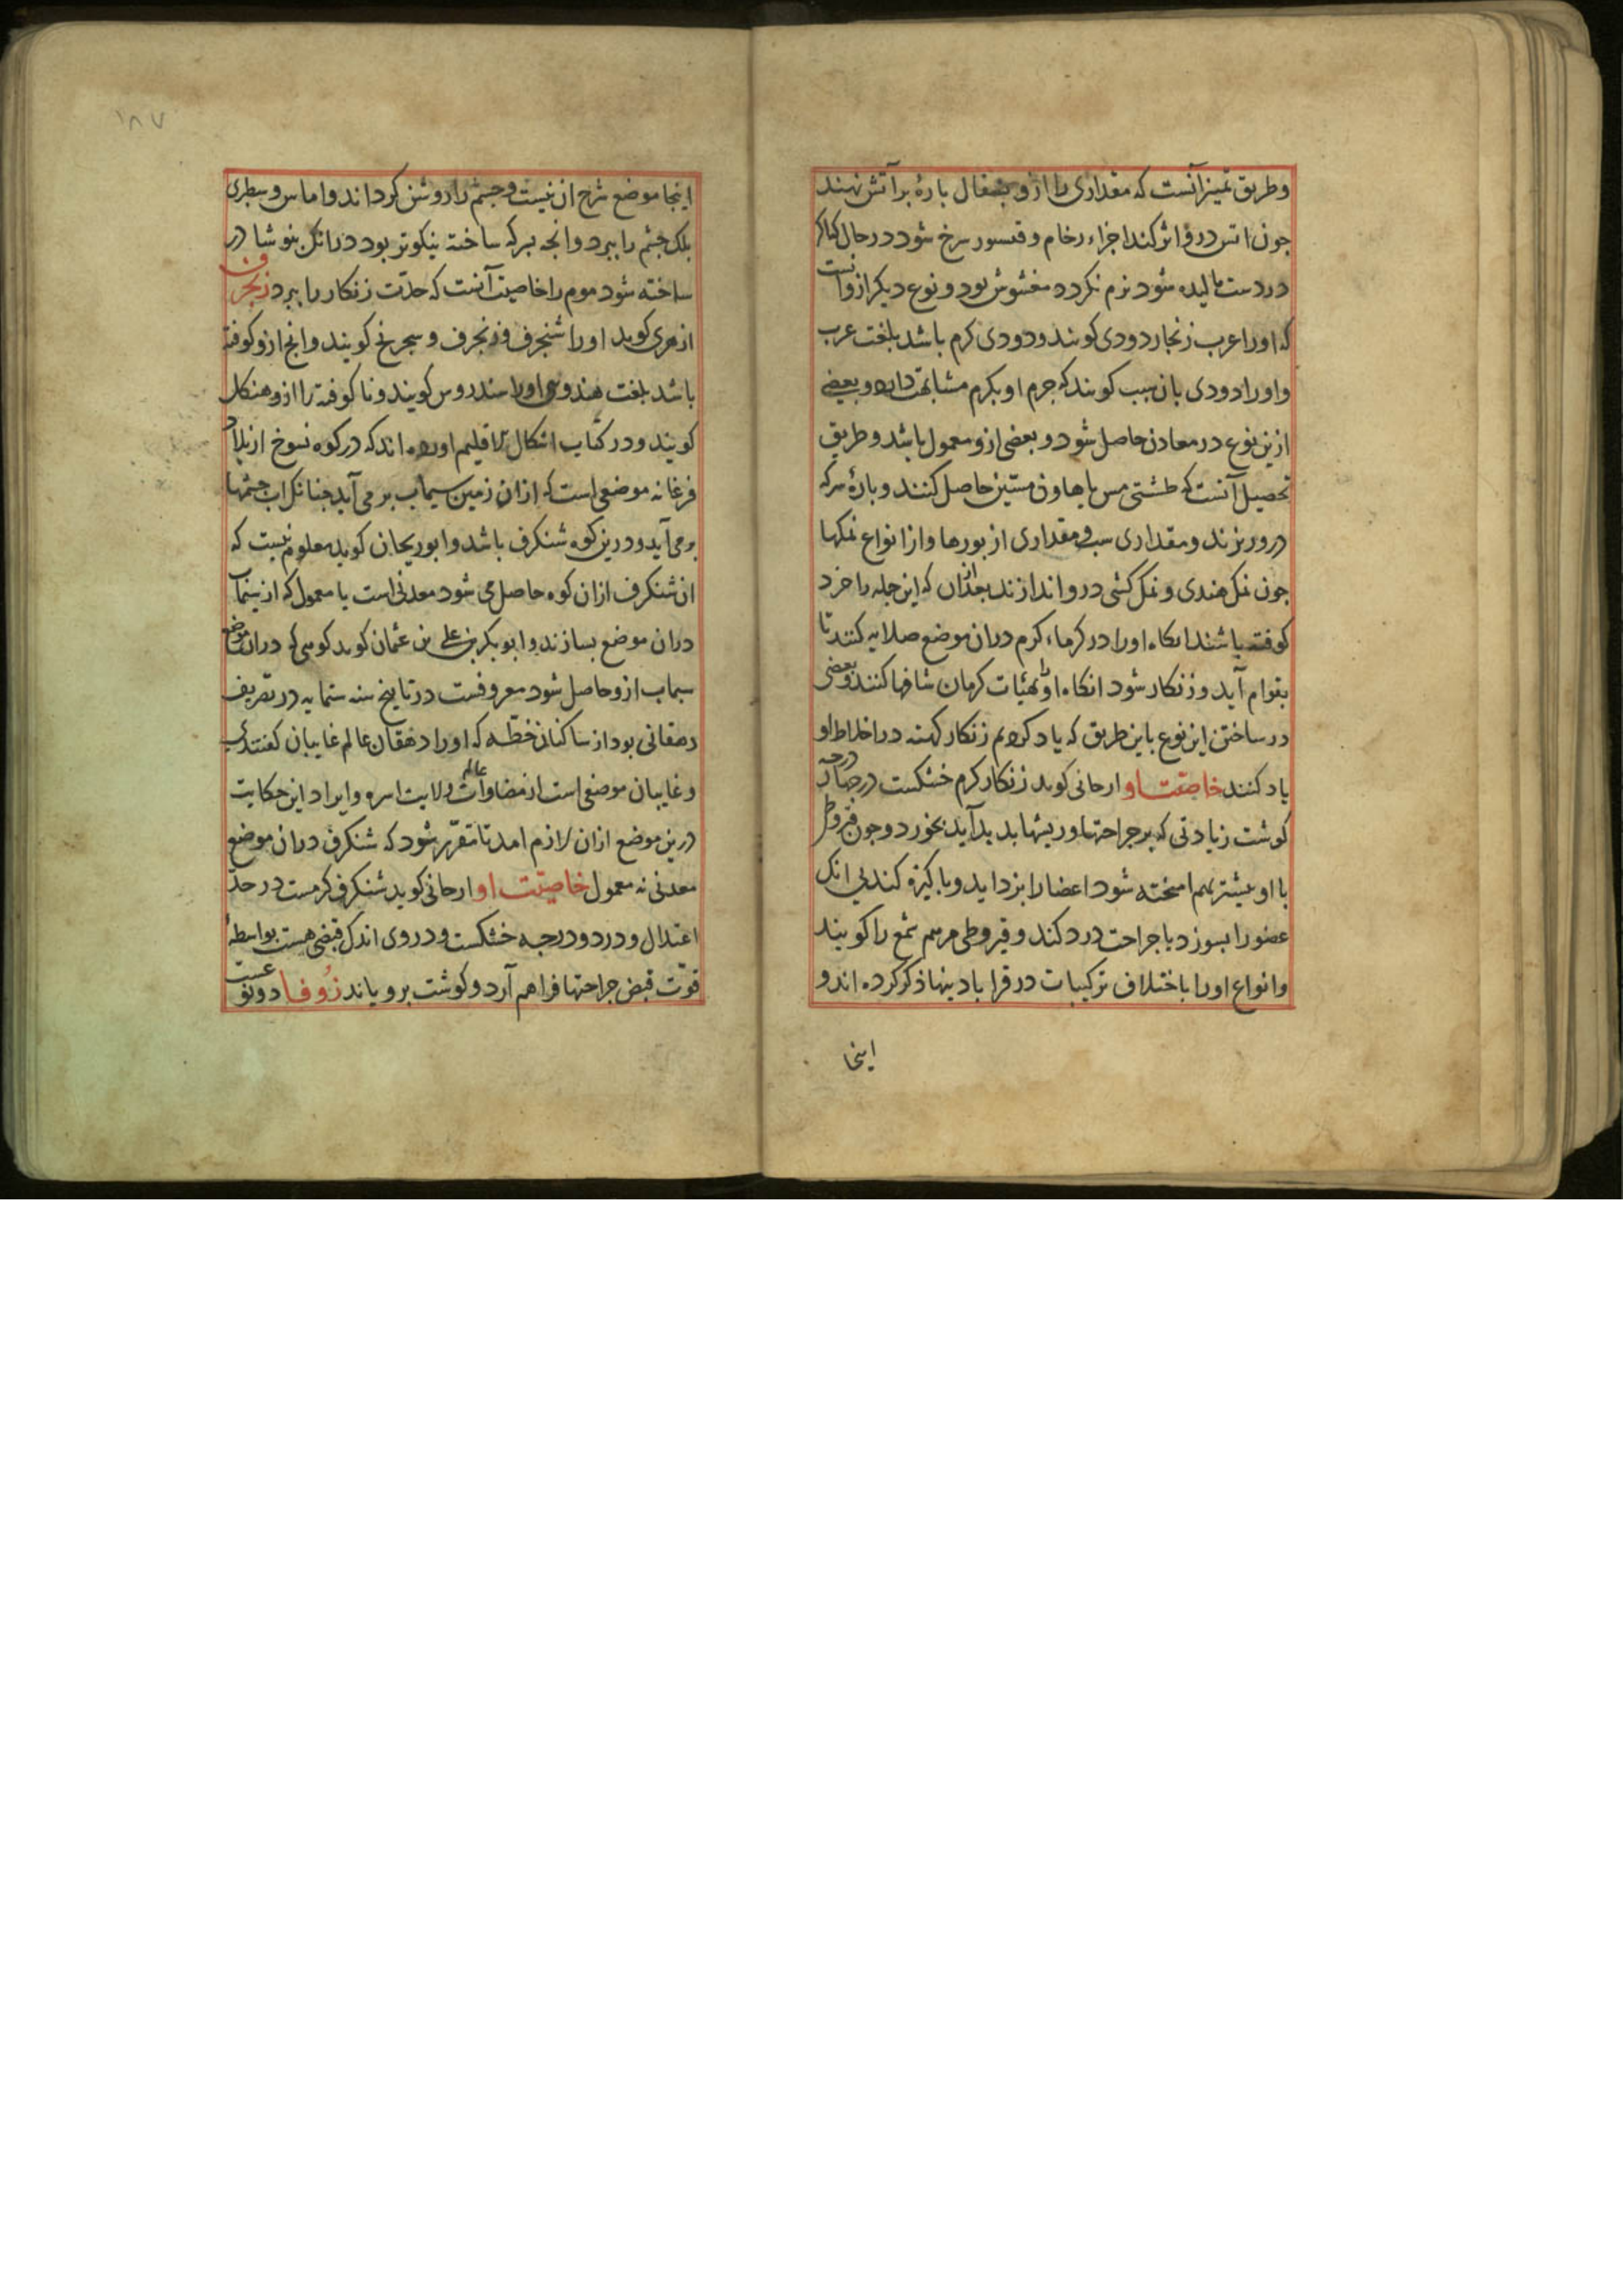 وطریق تمیز آنست که مقداری را ازو بسفال بارۀ بر آتش نهند
جون اتش درو اثر کند اجزاء رخام و قیسور سرخ شود در حال کباکر
در دست مالیده شود نرم نکردد مغشوش بود و نوع دیکر ازوانست
که اورا عرب زنجار دودی کویند و دودی کرم باشد بلغت عرب
و اورا دودی بان سبب کویند که جرم او بکرم مشابهت دارد و بعضی
ازین نوع در معادن حاصل شود و بعضی ازو معمول باشد و طریق
تحصیل آنست که طشتی مس یا هاون مستین حاصل کنند و بارۀ سرکه
درو ریزند و مقداری شب و مقداری از بورها و از انواع نمکها
جون نمک هندی و نمک کشی درو اندازند بعد ازان که این جمله را خرد
کوفته باشند انکاه اورا در کرماء کرم دران موضع صلایه کنند تا
بقوام آید و زنکار شود انکاه اورا بهیئات کرمان شافها کنند و بعضی
در ساختن این نوع باین طریق که یاد کردیم زنکار کهنه در اخلاط او
یاد کنند خاصیت او ارجانی کوید زنکار کرم خشکست در چهار درجه
کوشت زیادتی که بر جراحتها و ریشها بدید آید بخورد و جون قیروطی
با او بیشتر بهم امیخته شود اعضا را بزداید و باکیزه کند بی انک
عضو را بسوزد یا جراحت درد کند و قیروطی مرهم شمع را کویند
و انواع اورا باختلاف ترکیبات در قراباد ینها ذکر کرده اند و
اینجا
۱۸۷
اینجا موضع شرح ان نیست و جشم را روشن کرداند و اماس و سطبری
بلک جشم را ببرد و انجه بسرکه ساخته نیکوتر بود درانک بنوشادر
ساخته شود موم را خاصیت آنست که حدّت زنکار را ببرد زنجرف
ازهری کوید اورا شنجرف و زنجرف و سجرنج کویند و انج ازو کوفته
باشد بلغت هندوی اورا سندروس کویند و نا کوفته را ازو هنکلک
کویند و در کتاب اشکال الاقلیم اورده اند که در کوه نسوخ از بلاد
فرغانه موضعی است که ازان زمین سیماب بر می آید جنانک اب جشمها
بر می آید و درین کوه شنکرف باشد و ابو ریحان کوید معلوم نیست که
ان شنکرف ازان کوه حاصل می شود معدنی است یا معمول که از سیماب
دران موضع بسازند و ابو بکر بن علی بن عثمان کوید کوهی که دران موضع
سیماب ازو حاصل شود معروفست در تاریخ سنه ستمایه در تصریف
دهقانی بود از ساکنان خطّه که اورا دهقان عالم غایبان کفتندی
و غایبان موضعی است از مضاوات ولایت اسره و ایراد این حکایت
درین موضع ازان لازم امد تا مقرّر شود که شنکرف دران موضع
معدنی نه معمول خاصیّت او ارجانی کوید شنکرف کرمست در حدّ
اعتدال و در دو درجه خشکست و در وی اندک قبضی هست بواسطۀ
قوّت قبض جراحتها فراهم آرد و کوشت برویاند زُوفا دو نوعست